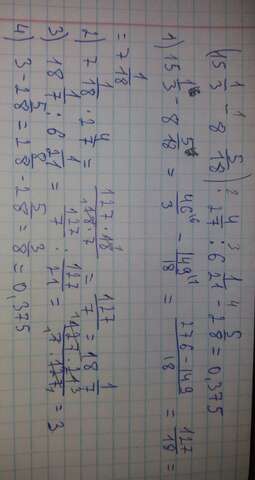 (15 1/3 - 8 5/18) · 2 4/7 : 6 1/21 - 2 5/8 = 0,375
1) 15 1/3 - 8 5/18 = 46/3 - 149/18 = (276-149)/18 = 127/18 =
= 7 1/18
2) 7 1/18 · 2 4/7 = (127·18)/(18·7) = 127/7 = 18 1/7
3) 18 1/7 : 6 1/21 = 127/7 : 127/21 = (127·21)/(7·127) = 3
4) 3 - 2 5/8 = 2 8/8 - 2 5/8 = 3/8 = 0,375